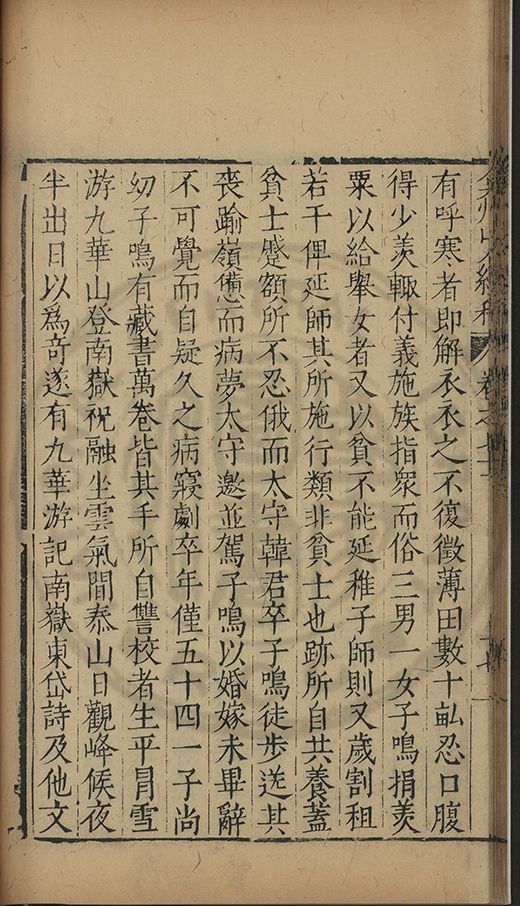 有呼寒者即解衣衣之不復徵薄田數十畆忍口腹
得少羨輙付義施族指衆而俗三男一女子鳴捐羨
粟以給舉女者又以貧不能延稚子師則又歲割租
若干俾延師其所施行類非貧士也跡所自共養蓋
貧士蹙額所不忍俄而太守韓君卒子鳴徒步送其
喪踰嶺憊而病夢太守邀並駕子鳴以婚嫁未畢辭
不可覺而自疑久之病寖劇卒年僅五十四一子尚
幼子鳴有藏書萬卷皆其手所自讐校者生平冐雪
游九華山登南嶽祝融坐雲氣間泰山日觀峰候夜
半出日以爲奇遂有九華游記南嶽東岱詩及他文